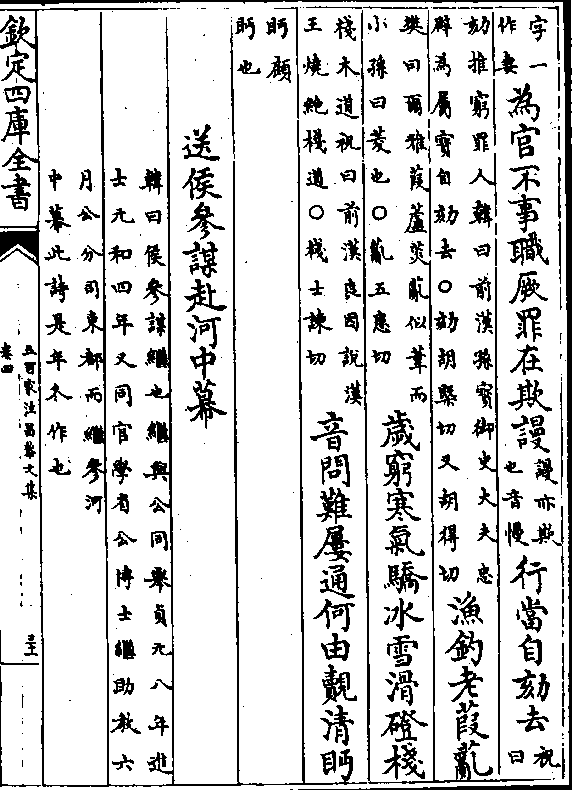 字一
作妻
為官不事職厥罪在欺謾
謾亦欺
也音慢
行當自劾去
祝
曰
劾推窮罪人韓曰前漢孫寳御史大夫忠
辟為屬寳自劾去○劾胡槩切又胡得切
漁釣老葭薍
樊曰爾雅葭蘆菼薍似葦而
小孫曰菼也○薍五患切
歲窮寒氣驕冰雪滑磴棧
棧木道祝曰前漢良因說漢
王燒絶棧道○棧士諫切
音問難屢通何由覿清眄
眄顧
眄也
送侯參謀赴河中幕
韓曰侯參謀繼也繼與公同舉貞元八年進
士元和四年又同官學省公博士繼助教六
月公分司東都而繼參河
中幕此詩是年冬作也
欽定四庫全書
五百家注昌黎文集
卷四